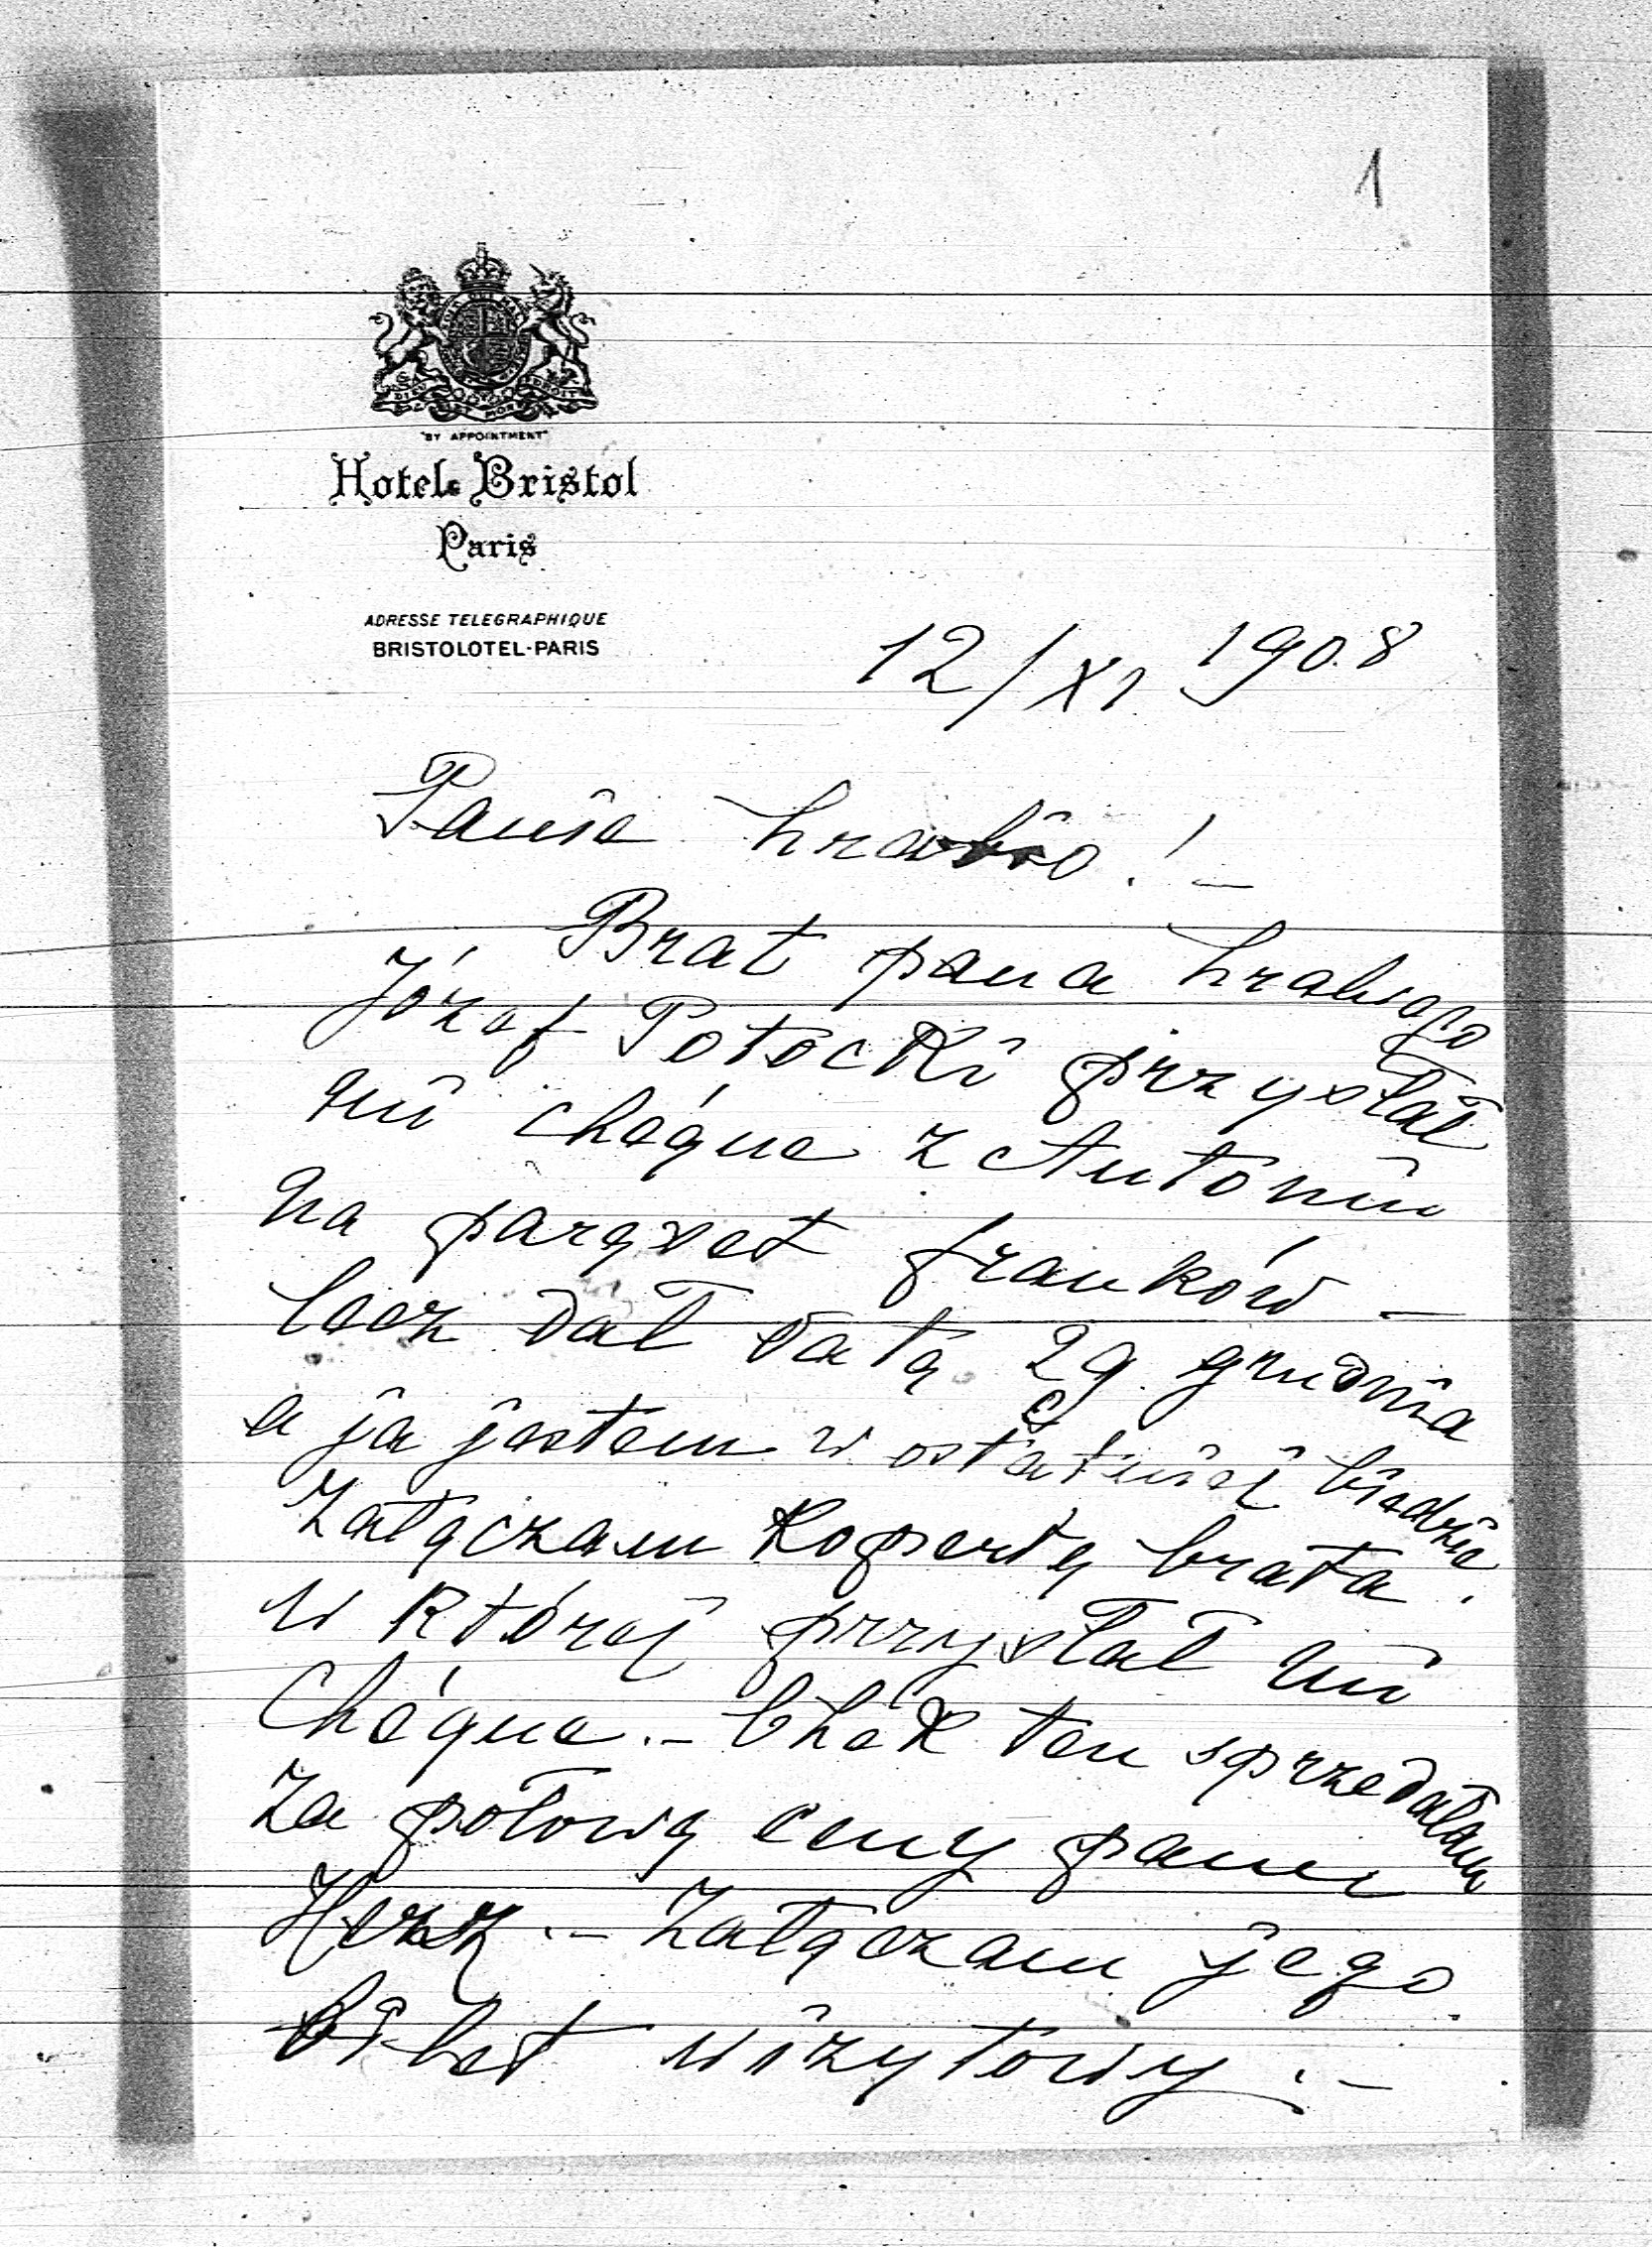 1
"BY APPOINTMENT"
Hotel Bristol
Paris
ADRESSE TELEGRAPHIQUE
BRISTOLOTEL-PARIS
12/XI 1908
Panie hrabio! –
Brat pana hrabiego
Józef Potocki przysłał
mi chéque z Antonin
na paręset franków –
lecz dał datę 29 grudnia
a ja jestem w ostatniej biedzie
Załączam kopertę brata.
w której przysłał mi
Chéque. – Chék ten sprzedałam
za połowę ceny panu
– Załączam jego
bilet wizytowy. –